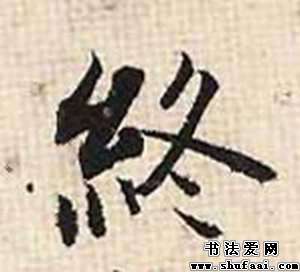 終
书法爱网
www.shufaai.com